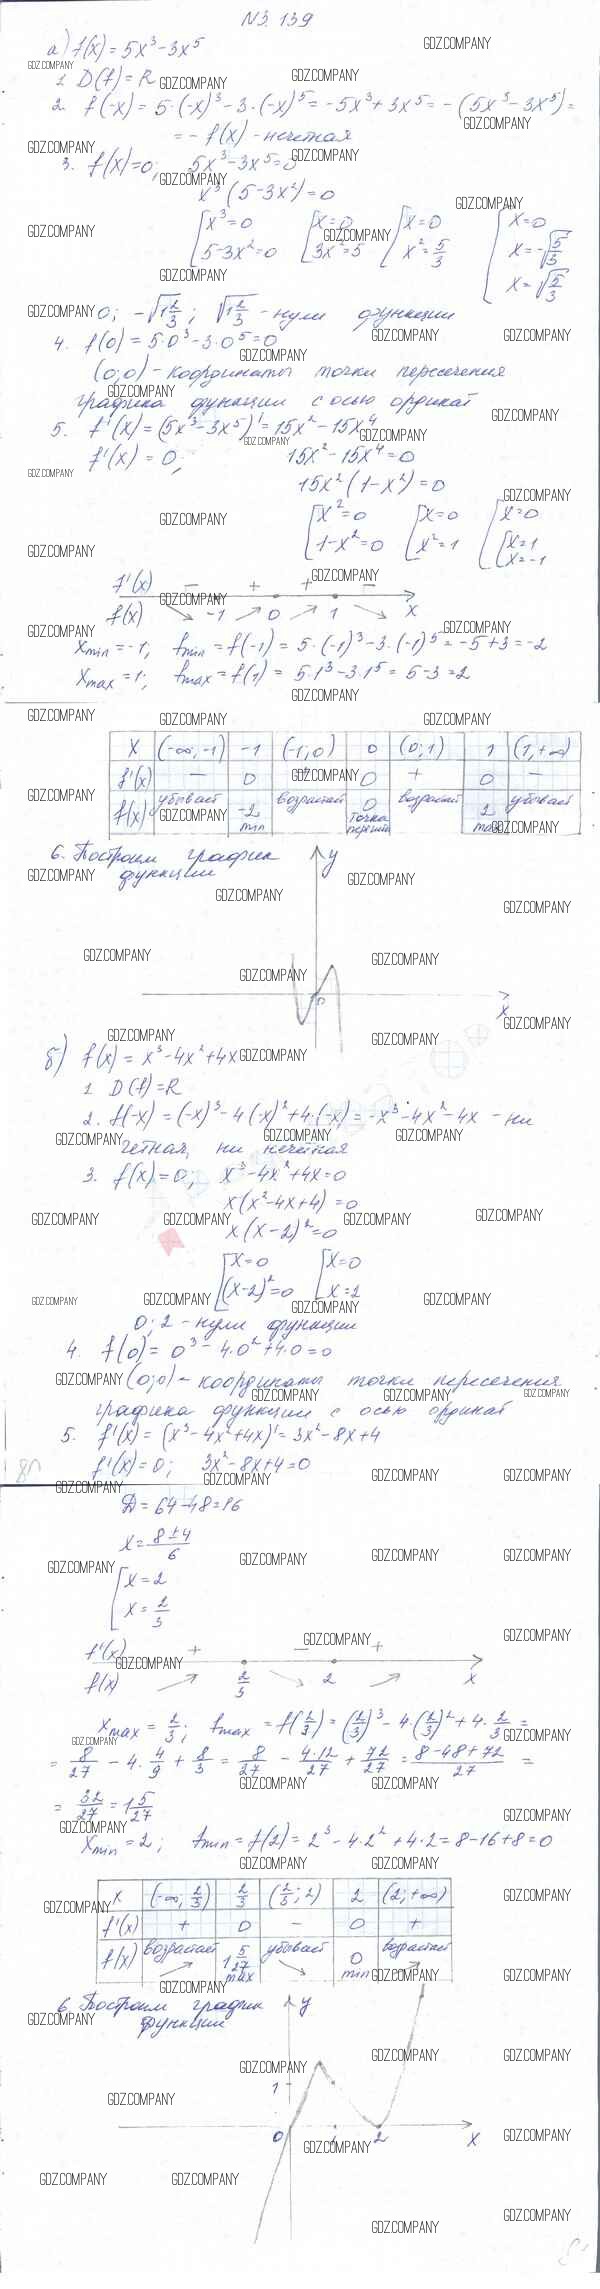 №3. 139
а) f(x) = 5x³ - 3x⁵
1. D(f) = R
2. f(-x) = 5·(-x)³ - 3·(-x)⁵ = -5x³ + 3x⁵ = -(5x³ - 3x⁵) =
= - f(x) - нечетная
3. f(x)=0; 5x³ - 3x⁵ = 0
x³(5 - 3x²) = 0
[x³=0 [x=0 [x=0 [x=0
5-3x²=0 3x²=5 x²=5/3 x=-√(5/3)
x=√(5/3)
0; -√(1 2/3); √(1 2/3) - нули функции
4. f(0) = 5·0³ - 3·0⁵ = 0
(0;0) - координаты точки пересечения
графика функции с осью ординат
5. f'(x) = (5x³ - 3x⁵)' = 15x² - 15x⁴
f'(x) = 0; 15x² - 15x⁴ = 0
15x²(1 - x²) = 0
[x²=0 [x=0 [x=0
1-x²=0 x²=1 [x=1
x=-1
f'(x) - + + -
f(x) -1 0 1 x
xmin = -1, fmin = f(-1) = 5·(-1)³ - 3·(-1)⁵ = -5+3 = -2
xmax = 1; fmax = f(1) = 5·1³ - 3·1⁵ = 5-3 = 2
x (-∞,-1) -1 (-1,0) 0 (0;1) 1 (1,+∞)
f'(x) - 0 0 + 0 -
f(x) убывает -2 min возрастает 0 точка возрастает 2 убывает
6. Построим график y
функции
0
x
б) f(x) = x³ - 4x² + 4x
1. D(f) = R
2. f(-x) = (-x)³ - 4(-x)² + 4·(-x) = -x³ - 4x² - 4x - ни
четная, ни нечетная
3. f(x) = 0; x³ - 4x² + 4x = 0
x(x² - 4x + 4) = 0
x(x-2)² = 0
[x=0 [x=0
(x-2)²=0 x=2
0; 2 - нули функции
4. f(0) = 0³ - 4·0² + 4·0 = 0
(0;0) - координаты точки пересечения
графика функции с осью ординат
5. f'(x) = (x³ - 4x² + 4x)' = 3x² - 8x + 4
f'(x) = 0; 3x² - 8x + 4 = 0
Д = 64 - 48 = 16
x = (8±4)/6
[x = 2
x = 2/3
f'(x) + - +
f(x) 2/3 2 x
xmax = 2/3; fmax = f(2/3) = (2/3)³ - 4·(2/3)² + 4·2/3 =
= 8/27 - 4·4/9 + 8/3 = 8/27 - 4·12/27 + 72/27 = (8-48+72)/27 =
= 32/27 = 1 5/27
xmin = 2; fmin = f(2) = 2³ - 4·2² + 4·2 = 8-16+8 = 0
x (-∞, 2/3) 2/3 (2/3; 2) 2 (2;+∞)
f'(x) + 0 - 0 +
f(x) возрастает 1 5/27 max убывает 0 min возрастает
6. Построим график y
функции
1
0 1 2 x
GDZ.COMPANY